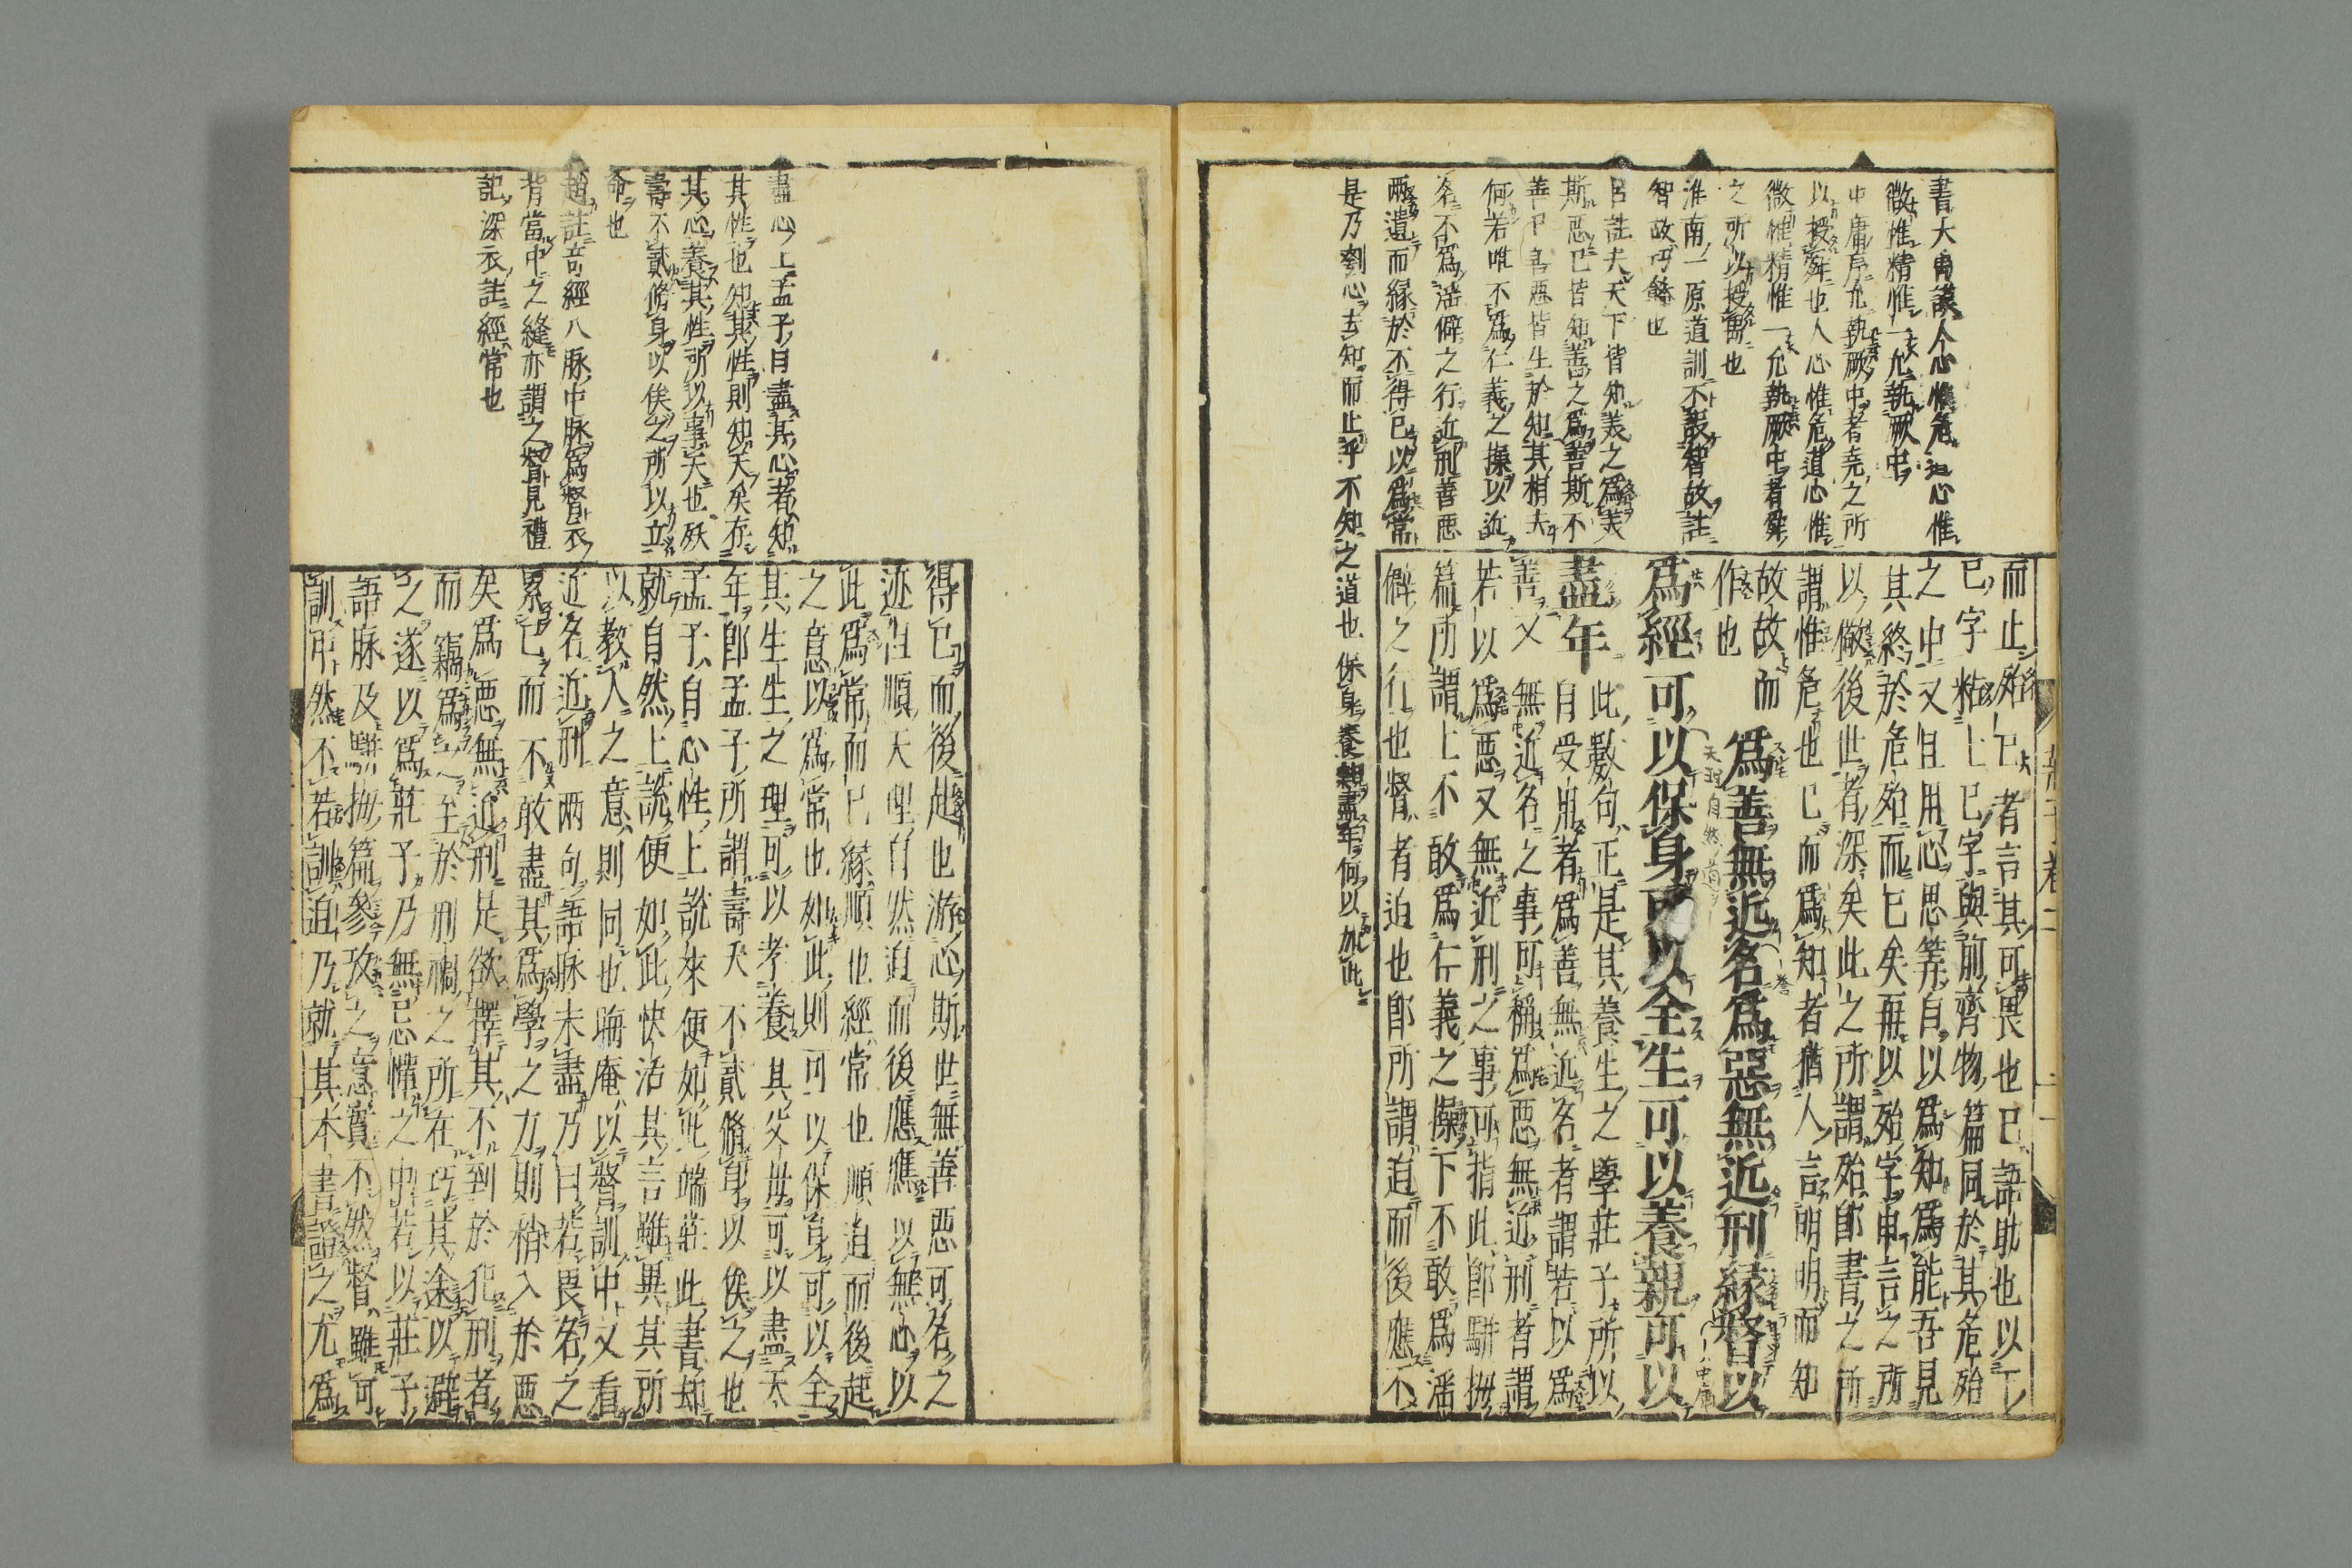 書大禹謨人心惟危道心惟
微惟精惟一允執厥中
中庸序允執厥中者堯之所
以授舜也人心惟危道心惟
微惟精惟一允執厥中者舜
之所以授禹也
淮南一原道訓不設智故註
智故巧飾也
呂註夫天下皆知美之爲美
斯惡已皆知善之爲善斯不
善已善惡皆生於知其相去
何若唯不爲仁義之操以近
名不爲淫僻之行近刑善惡
兩遺而緣於不得已以爲常
是乃劉心去知而止乎不知之道也保身養親盡年何以加此
而止殆已者言其可畏也已語助也以下
已字粘上已字與前齊物篇同於其危殆
之中又且用心思筭自以爲知爲能吾見
其終於危殆而已矣再以殆字申言之所
以儆後世者深矣此之所謂殆即書之所
謂惟危也已而爲知者猶人言明明而知
故故而
作也
爲善無近名爲惡無近刑緣督以
爲經可以保身可以全生可以養親可以
盡年
此數句正是其養生之學莊子所以
自受用者爲善無近名者謂若以爲
善又無近名之事可稱爲惡無近刑者謂
若以爲惡又無近刑之事可指此即駢拇
篇所謂上不敢爲仁義之操下不敢爲淫
僻之行也督者迫也即所謂迫而後應不
盡心上孟子曰盡其心者知
其性也知其性則知天矣存
其心養其性所以事天也殀
壽不貳脩身以俟之所以立
命也
趙註奇經八脉中脉爲督衣
背當中之縫亦謂之督見禮
記深衣註經常也
得已而後起也游心斯世無善惡可名之
迹但順天理自然迫而後應應以無心以
此爲常而已緣順也經常也順迫而後起
之意以爲常也如此則可以保身可以全
其生生之理可以孝養其父母可以盡天
年即孟子所謂壽夭不貳脩身以俟之也
孟子自心性上說來便如此端莊此書却
就自然上說便如此快活其言雖異其所
以教人之意則同也晦庵以督訓中又看
近名近刑兩句語脉未盡乃曰若畏名之
累已而不敢盡其爲學之力則稍入於惡
矣爲惡無近刑是欲擇其不到於犯刑者
而竊爲之至於刑禍之所在巧其途以避
之遂以爲莊子乃無忌憚之中若以莊子
語脉及駢拇篇參攷之意實不然督雖可
訓中然不若訓迫乃就其本書證之尤爲